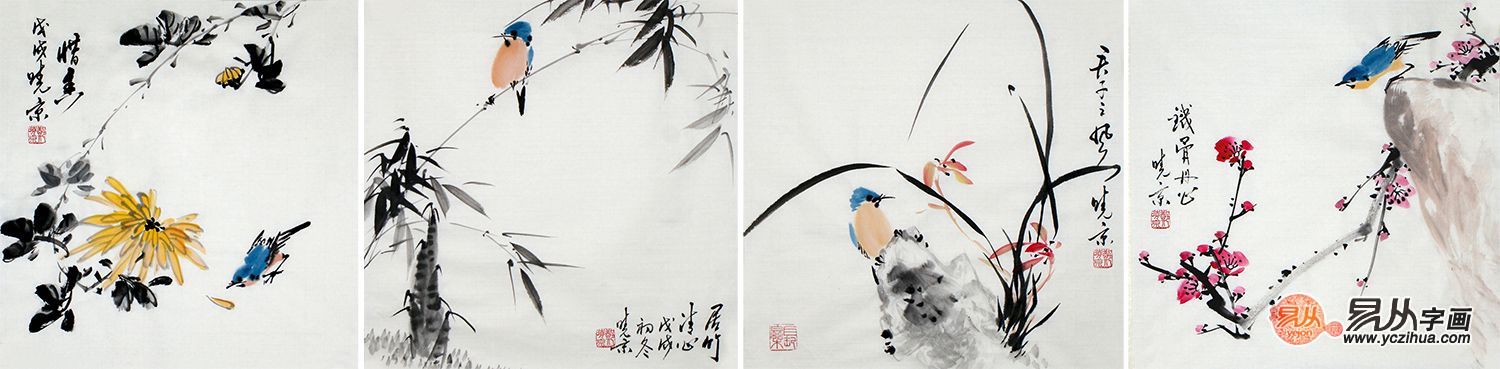 惜香
戊戌晓京
居竹
清心
戊戌
初冬
晓京
君子之风
晓京
铁骨丹心
晓京
易从
yicong
易从字画
www.yczihua.com